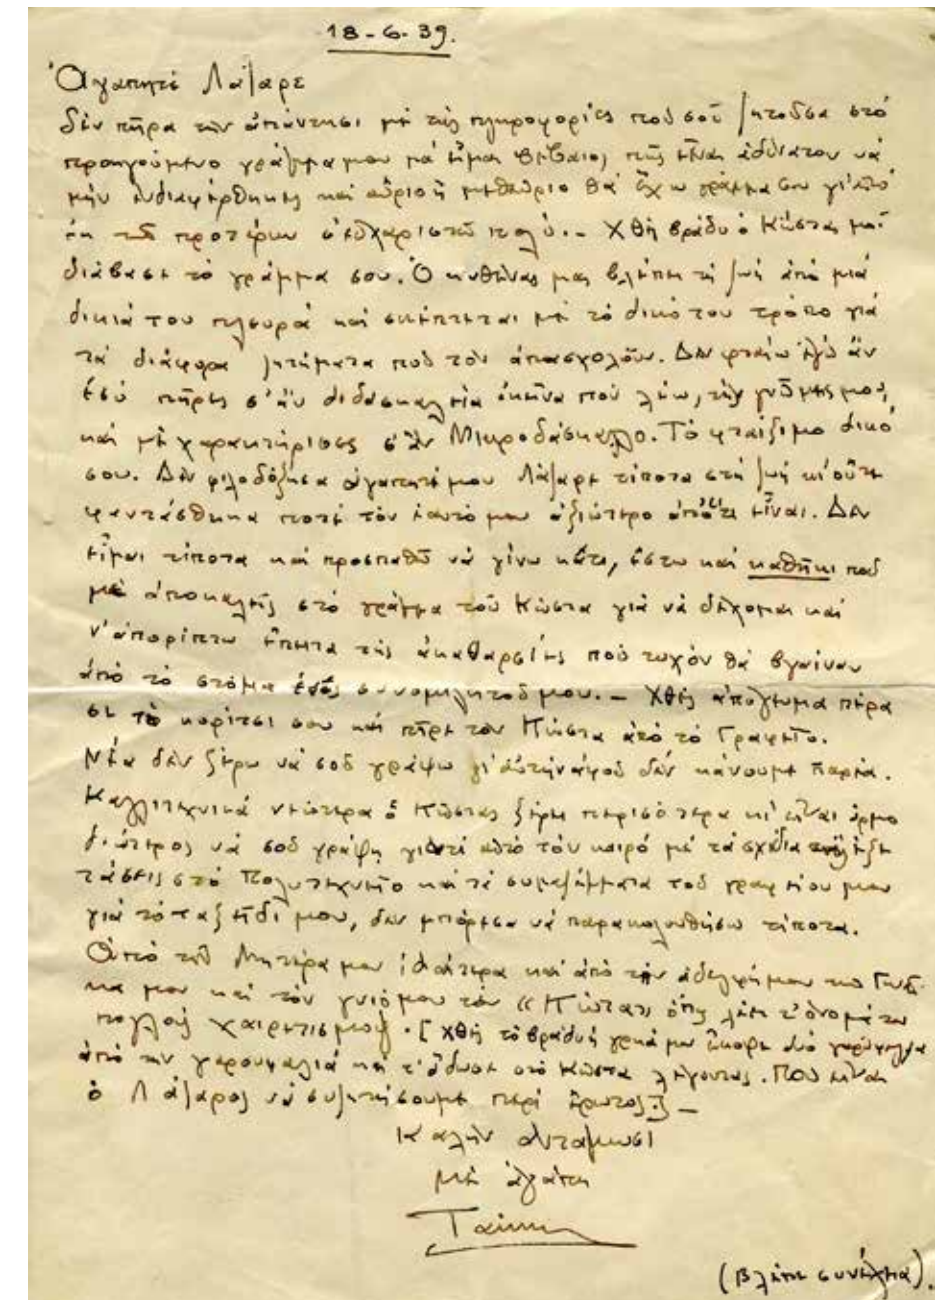 18-6-39.
Ἀγαπητέ Λάζαρε
δέν πῆρα τήν ἀπάντησι μέ τίς πληροφορίες πού σοῦ ζητοῦσα στό
προηγούμενο γράμμα μου μά εἶμαι βέβαιος πῶς εἶναι ἀδύνατον νά
μήν ἐνδιαφέρθηκες καί αὔριο ἤ μεθαύριο θά ἔχω γράμμα σου γι' αὐτό
ἐκ τῶν προτέρων σ' εὐχαριστῶ πολύ.- Χθές βράδυ ὁ Κώστας μοῦ
διάβασε τό γράμμα σου. Ὁ καθένας μας βλέπει τή ζωή ἀπό μιά
δικιά του πλευρά καί σκέπτεται μέ τό δικό του τρόπο γιά
τά διάφορα ζητήματα πού τόν ἀπασχολοῦν. Δέν φταίω ἐγώ ἄν
ἐσύ πῆρες σ'ἄν διδασκαλία ἐκεῖνα πού λέω, τίς γνῶμες μου,
καί μέ χαρακτήρισες σ'ἄν Μικροδάσκαλο. Τό φταίξιμο δικό
σου. Δέν φιλοδόξησα ἀγαπητέ μου Λάζαρε τίποτα στή ζωή κι' οὔτε
φαντάσθηκα ποτέ τόν ἑαυτό μου ἀξιώτερο ἀπ' ὅτι εἶναι. Δέν
εἶμαι τίποτα καί προσπαθῶ νά γίνω κάτι, ἔστω καί καθῆκι πού
μέ ἀποκαλεῖς στό γράμμα τοῦ Κώστα γιά νά δέχομαι καί
ν'ἀπορίπτω ἔπειτα τίς ἀκαθαρσίες πού τυχόν θά βγαίνουν
ἀπό τό στόμα ἑνός συνομιλητοῦ μου.- Χθές ἀπόγευμα πέρα
σε τό κορίτσι σου καί πῆρε τόν Κώστα ἀπό τό Γραφεῖο.
Νέα δέν ξέρω νά σοῦ γράψω γι' αὐτήν ἀφοῦ δέν κάνουμε παρέα.
Καλλιτεχνικά νεώτερα ὁ Κώστας ξέρει περισότερα κι' εἶναι ἁρμο
διώτερος νά σοῦ γράψη γιατί αὐτό τόν καιρό μέ τά σχέδια ἐξε
τάσεις στό Πολυτεχνεῖο καί τά τοῦ γραφείου μου
γιά τό ταξεῖδι μου, δέν μπόρεσα νά παρακολουθήσω τίποτα.
Ἀπό τή Μητέρα μου ἰδιαίτερα καί ἀπό τήν ἀδελφή μου τή Γυναῖ-
κα μου καί τόν γυιό μου τόν «Κώστα» ὅπως λέει τ'ὄνομά του
πολλούς χαιρετισμούς. [Χθές τό βράδυ ἡ γρηά μου ἔκοψε δυό γαρύφαλλα
ἀπό τήν γαρουφαλιά καί τ'ἔδωσε στό Κώστα λέγοντας. Ποῦ εἶναι
ὁ Λάζαρος νά συζητήσουμε περί ἔρωτος;]-
Καλήν ἀντάμωσι
μέ ἀγάπη
Τάκης
(Βλέπε συνέχεια).